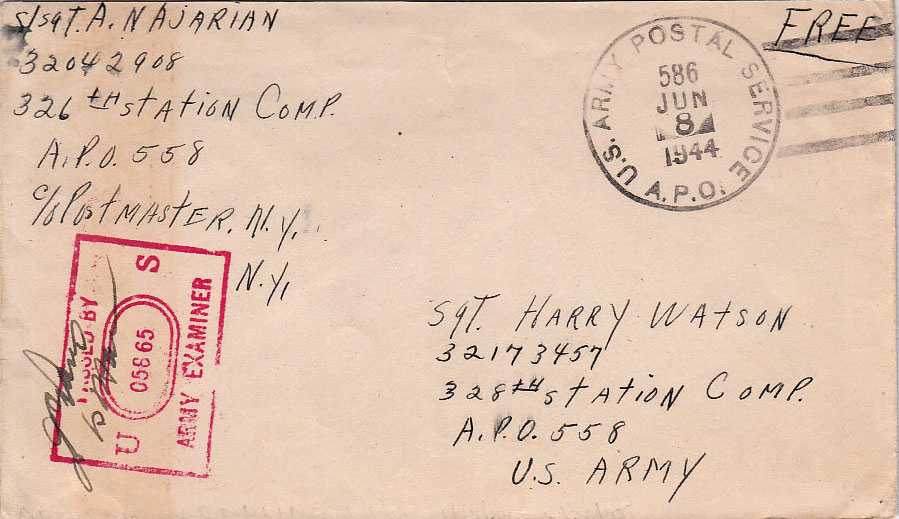 S/SGT. A. NAJARIAN
32042908
326TH STATION COMP.
A.P.O. 558
C/O POSTMASTER, N.Y.
N.Y.
FREE
U.S. ARMY POSTAL SERVICE
586
JUN
8
1944
A.P.O.
PASSED BY
U S
05865
ARMY EXAMINER
SGT. HARRY WATSON
32173457
328TH STATION COMP.
A.P.O. 558
U.S. ARMY